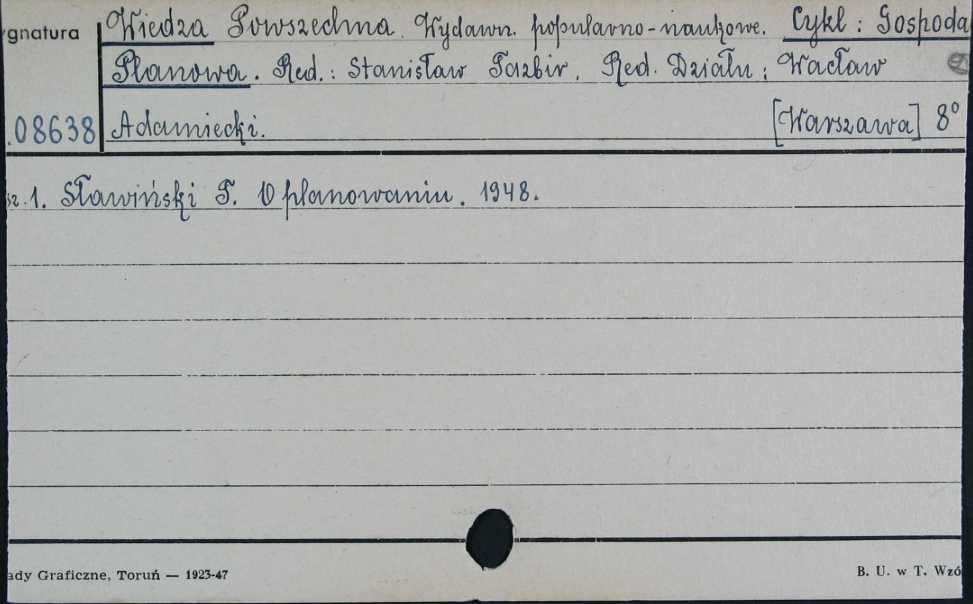 gnatura Wiedza Powszechna. Wydawn. popularno-naukowe. Cykl: Gospoda
Planowa. Red.: Stanisław Tazbir. Red. Działu: Wacław
08638 Adamiecki. [Warszawa] 8°
sz. 1. Sławiński T. O planowaniu. 1948.
ady Graficzne, Toruń — 1923-47 B. U. w T. Wzó